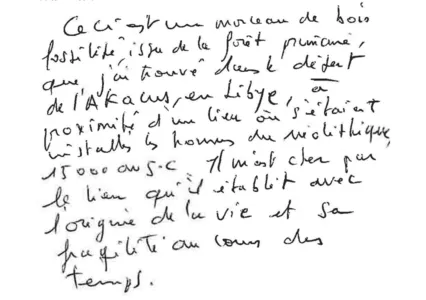 Ceci est un morceau de bois
fossilité, issu de la forêt primaire,
que j'ai trouvé dans le désert
de l'Akacus, en Libye, à
proximité d'un lieu où s'étaient
installés les hommes du néolithique,
15000 av J.C. Il m'est cher par
le lien qu'il établit avec
l'origine de la vie et sa
fragilité au cours des
temps.